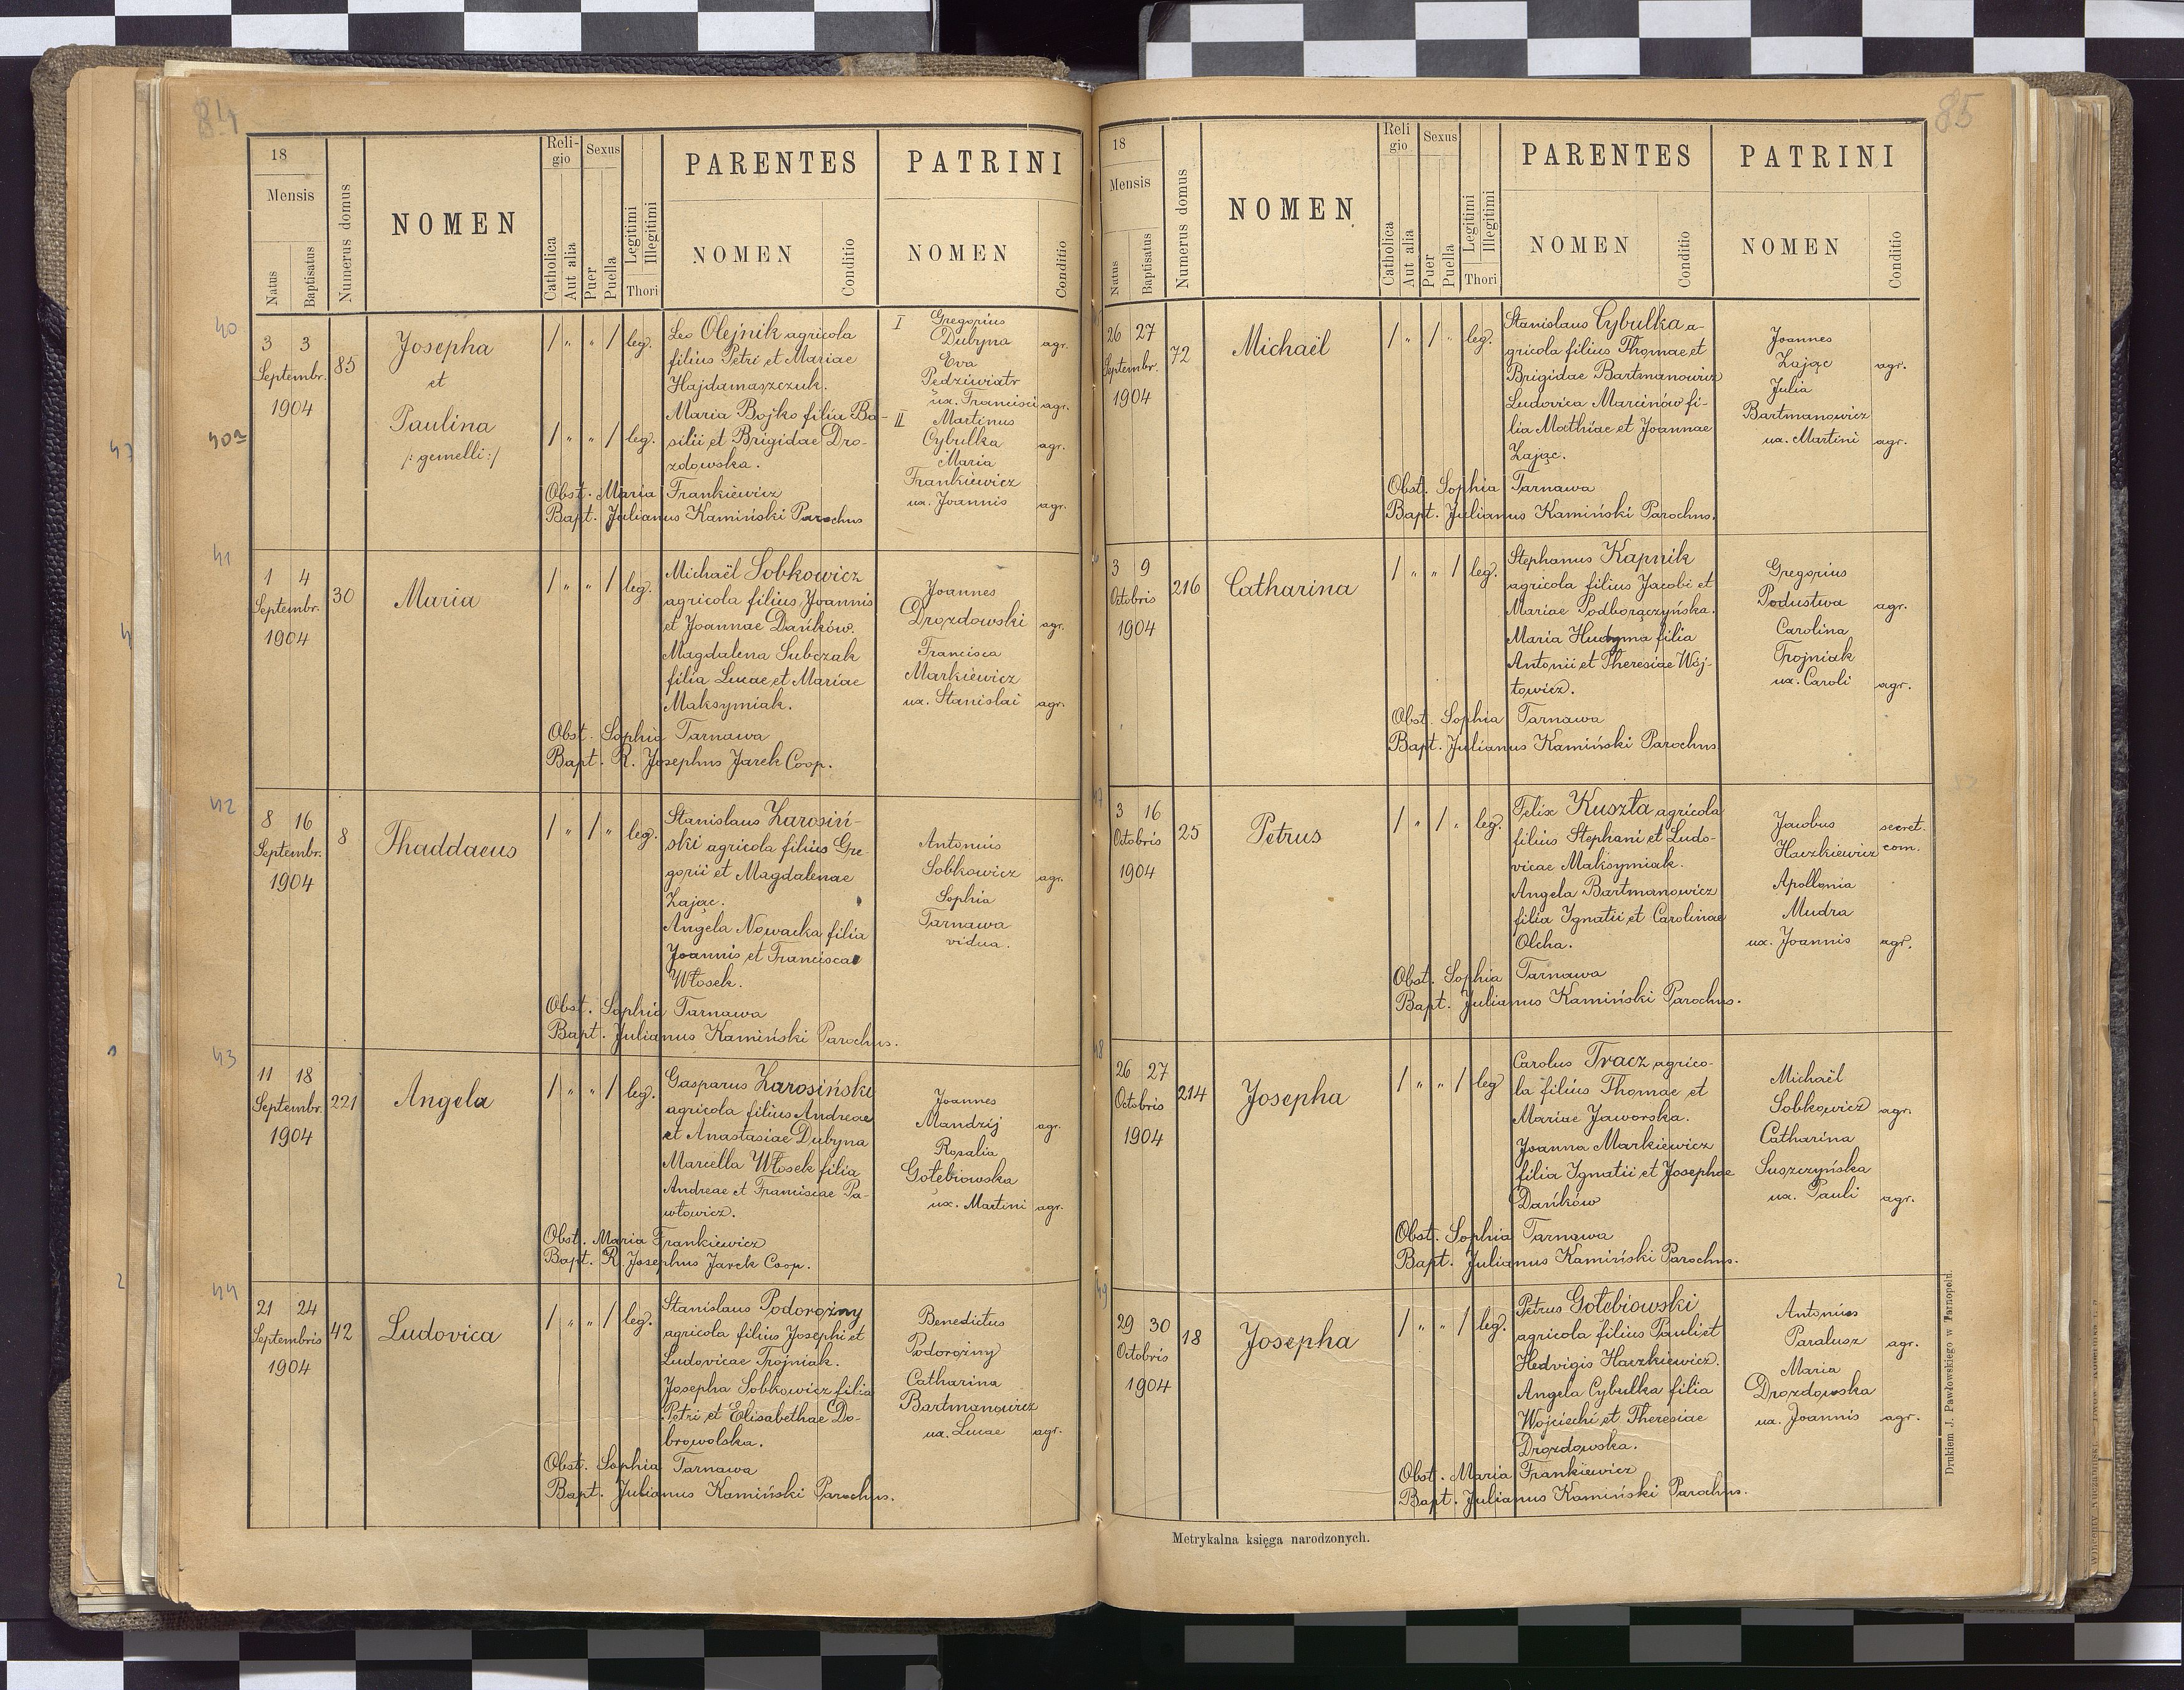 84
18
Mensis
Natus
Baptisatus
Numerus domus
NOMEN
Religio
Catholica
Aut alia
Sexus
Puer
Puella
Legitimi
Illegitimi
Thori
PARENTES
NOMEN
Conditio
PATRINI
NOMEN
Conditio
40
3 3
Septembr.
1904
85
Josepha
et
Paulina
/: gemelli :/
40a
/ " " / leg.
/ " " / leg.
Leo Olejnik agricola
filius Petri et Mariae
Hajdamaszczuk.
Maria Bojko filia Ba-
silii et Brigidae Dro-
zdowska.
Obst. Maria Frankiewicz
Bapt. Julianus Kamiński Parochus
I Gregorius
Dubyna agr.
Eva
Pędziwiatr
ux. Francisci agr.
II Martinus
Cybulka agr.
Maria
Frankiewicz
ux. Joannis agr.
41
1 4
Septembr.
1904
30
Maria
/ " " / leg.
Michaël Sobkowicz
agricola filius Joannis
et Joannae Dańków.
Magdalena Subczak
filia Lucae et Mariae
Maksymiak.
Obst. Sophia Tarnawa
Bapt. R. Josephus Jarek Coop.
Joannes
Drozdowski agr.
Francisca
Markiewicz
ux. Stanislai agr.
42
8 16
Septembr.
1904
8
Thaddaeus
/ " / " leg.
Stanislaus Zarosiń-
ski agricola filius Gre-
gorii et Magdalenae
Zając.
Angela Nowacka filia
Joannis et Franciscae
Włosek.
Obst. Sophia Tarnawa
Bapt. Julianus Kamiński Parochus.
Antonius
Sobkowicz agr.
Sophia
Tarnawa
vidua.
43
11 18
Septembr.
1904
221
Angela
/ " " / leg.
Gasparus Zarosiński
agricola filius Andreae
et Anastasiae Dubyna
Marcella Włosek filia
Andreae et Franciscae Pa-
włowicz.
Obst. Maria Frankiewicz
Bapt. R. Josephus Jarek Coop.
Joannes
Mandzij agr.
Rosalia
Gołębiowska
ux. Martini agr.
44
21 24
Septembris
1904
42
Ludovica
/ " " / leg.
Stanislaus Podorożny
agricola filius Josephi et
Ludovicae Trojniak.
Josepha Sobkowicz filia
Petri et Elisabethae Do-
browolska.
Obst. Sophia Tarnawa
Bapt. Julianus Kamiński Parochus.
Benedictus
Podorożny
Catharina
Bartmanowicz
ux. Lucae agr.
85
18
Mensis
Natus
Baptisatus
Numerus domus
NOMEN
Religio
Catholica
Aut alia
Sexus
Puer
Puella
Legitimi
Illegitimi
Thori
PARENTES
NOMEN
Conditio
PATRINI
NOMEN
Conditio
26 27
Septembr.
1904
72
Michaël
/ " / " leg.
Stanislaus Cybulka a-
gricola filius Thomae et
Brigidae Bartmanowicz
Ludovica Marcinów fi-
lia Mathiae et Joannae
Zając.
Obst. Sophia Tarnawa
Bapt. Julianus Kamiński Parochus.
Joannes
Zając agr.
Julia
Bartmanowicz
ux. Martini agr.
3 9
Octobris
1904
216
Catharina
/ " " / leg.
Stephanus Kapnik
agricola filius Jacobi et
Mariae Podborączyńska.
Maria Hudyma filia
Antonii et Theresiae Wój-
towicz.
Obst. Sophia Tarnawa
Bapt. Julianus Kamiński Parochus
Gregorius
Podustwa agr.
Carolina
Trojniak
ux. Caroli agr.
3 16
Octobris
1904
25
Petrus
/ " / " leg.
Felix Kuszta agricola
filius Stephani et Ludo-
vicae Maksymiak.
Angela Bartmanowicz
filia Ignatii et Carolinae
Olcha.
Obst. Sophia Tarnawa
Bapt. Julianus Kamiński Parochus.
Jacobus secret.
Haczkiewicz com.
Apollonia
Mudra
ux. Joannis agr.
48
26 27
Octobris
1904
214
Josepha
/ " " / leg
Carolus Tracz agrico-
la filius Thomae et
Mariae Jaworska.
Joanna Markiewicz
filia Ignatii et Josephae
Dańków
Obst. Sophia Tarnawa
Bapt. Julianus Kamiński Parochus.
Michaël
Sobkowicz agr.
Catharina
Suszczyńska
ux. Pauli agr.
49
29 30
Octobris
1904
18
Josepha
/ " " / leg.
Petrus Gołębiowski
agricola filius Pauli et
Hedvigis Haczkiewicz.
Angela Cybulka filia
Wojciechi et Theresiae
Drozdowska.
Obst. Maria Frankiewicz
Bapt. Julianus Kamiński Parochus.
Antonius
Paralusz agr.
Maria
Drozdowska
ux. Joannis agr.
Metrykalna księga narodzonych.
Drukiem J. Pawłowskiego w Tarnopoln.